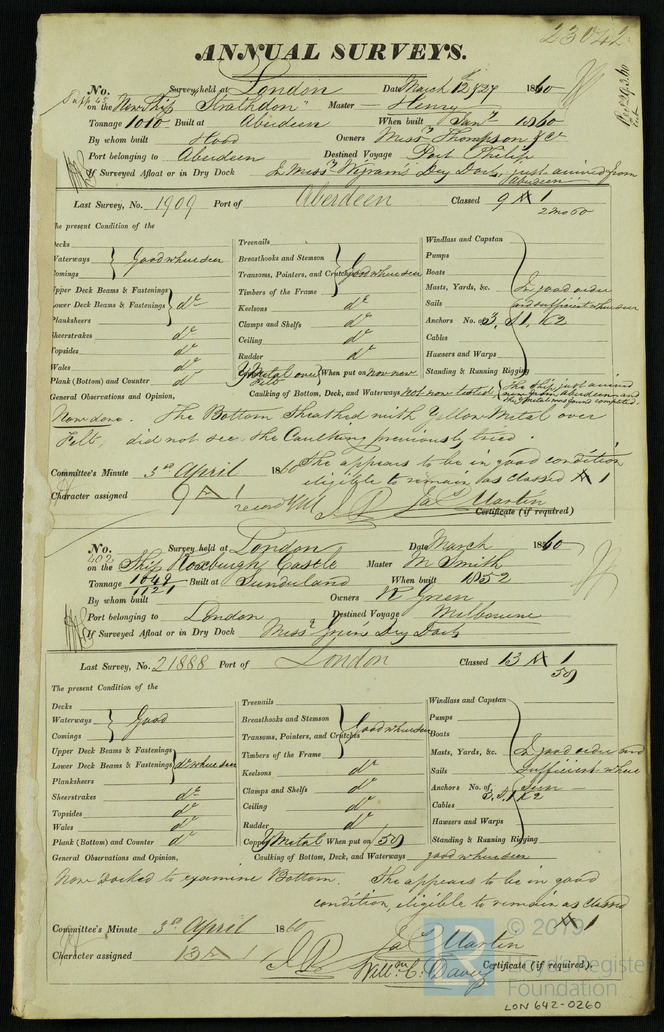 23042
ANNUAL SURVEYS.
No. Survey held at London Date March 12 & 27 1860
on the New Ship "Strathdon" Master Henry
Tonnage 1010 Built at Aberdeen When built Jany 1860
By whom built Hood Owners Messrs Thompson & Co
Port belonging to Aberdeen Destined Voyage Port Philip
If Surveyed Afloat or in Dry Dock In Messrs Wigrams Dry Dock, just arrived from Aberdeen
Last Survey, No. 1909 Port of Aberdeen Classed 9 A 1
2 mo 60
The present Condition of the
Decks
Waterways
Comings
Good where seen
Upper Deck Beams & Fastenings
Lower Deck Beams & Fastenings
Planksheers
do
Sheerstrakes do
Topsides do
Wales do
Plank (Bottom) and Counter do
Treenails
Breasthooks and Stemson
Transoms, Pointers, and Crutches
Timbers of the Frame
Good where seen
Keelsons do
Clamps and Shelfs do
Ceiling do
Rudder do
Y Metal over Felt When put on now new
Windlass and Capstan
Pumps
Boats
Masts, Yards, &c.
Sails
Anchors No. of 3, S1, K2
Cables
Hawsers and Warps
Standing & Running Rigging
In good order and sufficient where seen
General Observations and Opinion, Caulking of Bottom, Deck, and Waterways not now tested, the ship just arrived new from Aberdeen and the metal was found completed.
Now done. The Bottom Sheathed with Yellow Metal over
Felt, did not see the Caulking previously tried.
She appears to be in good condition,
eligible to remain as classed A 1
Committee's Minute 3rd April 1860
Character assigned 9 A 1
record YM
Jas Martin
Certificate (if required)
No. Survey held at London Date March 1860
402 on the Ship Roxburgh Castle Master M Smith
Tonnage 1049 1121 Built at Sunderland When built 1852
By whom built Owners R Green
Port belonging to London Destined Voyage Melbourne
If Surveyed Afloat or in Dry Dock Messrs Greens Dry Dock
Last Survey, No. 21888 Port of London Classed 13 A 1
59
The present Condition of the
Decks
Waterways
Comings
Good
Upper Deck Beams & Fastenings
Lower Deck Beams & Fastenings
Planksheers
do where seen
Sheerstrakes do
Topsides do
Wales do
Plank (Bottom) and Counter do
Treenails
Breasthooks and Stemson
Transoms, Pointers, and Crutches
Timbers of the Frame
Good where seen
Keelsons do
Clamps and Shelfs do
Ceiling do
Rudder do
Copper Y Metal When put on 59
Windlass and Capstan
Pumps
Boats
Masts, Yards, &c.
Sails
Anchors No. of 3, S1, K2
Cables
Hawsers and Warps
Standing & Running Rigging
In good order and sufficient where seen
General Observations and Opinion, Caulking of Bottom, Deck, and Waterways good where seen
Now Docked to examine Bottom. She appears to be in good
condition, eligible to remain as classed
A 1
Committee's Minute 3rd April 1860
Character assigned 13 A 1
Jas Martin
Willm C. Davey
Certificate (if required).
© 2019
Lloyd's Register
Foundation
LON 642-0260